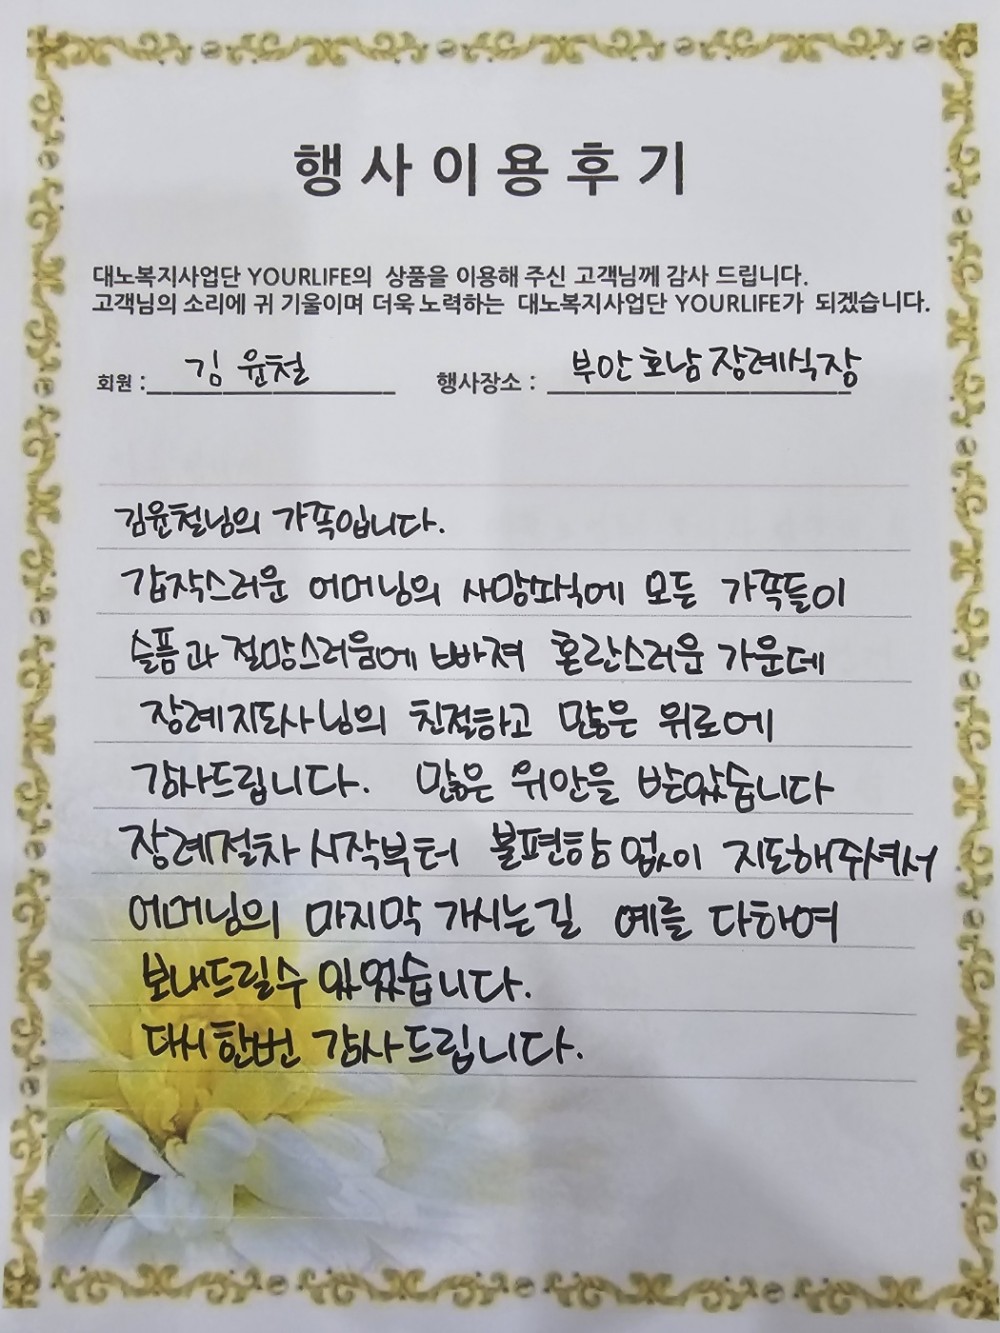 행사이용후기
대노복지사업단 YOURLIFE의 상품을 이용해 주신 고객님께 감사 드립니다.
고객님의 소리에 귀 기울이며 더욱 노력하는 대노복지사업단 YOURLIFE가 되겠습니다.
회원 : 김 윤철 행사장소 : 부안 호남 장례식장
김윤철님의 가족입니다.
갑작스러운 어머님의 사망소식에 모든 가족들이
슬픔과 절망스러움에 빠져 혼란스러운 가운데
장례지도사님의 친절하고 많은 위로에
감사드립니다. 많은 위안을 받았습니다
장례절차 시작부터 불편함 없이 지도해주셔서
어머님의 마지막 가시는길 예를 다하여
보내드릴수 있었습니다.
다시한번 감사드립니다.